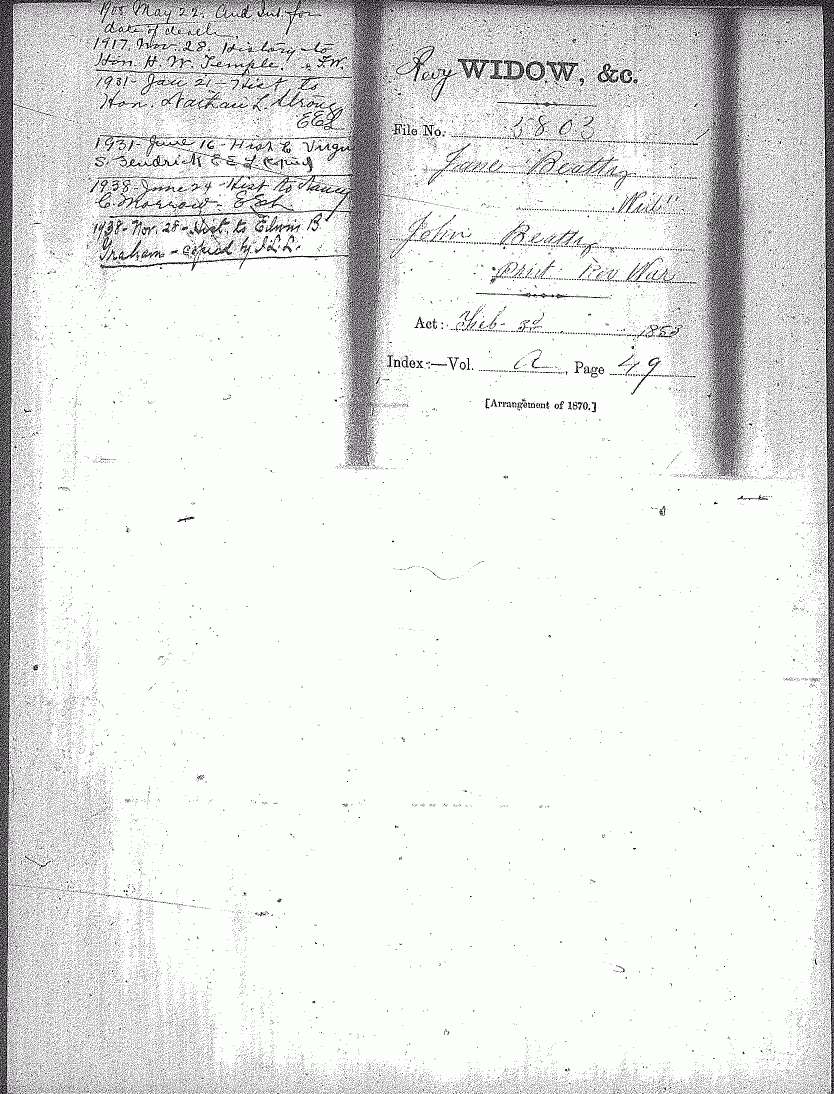 1905 May 22. And Inf. for
date of death
1917. Nov. 28. History to
Hon. H. W. Temple. F.W.
1931 - Jan 21 - Hist to
Hon. Nathan L Strong
EEL
1931 - June 16 - Hist to Virgin
S. Fendrick E E L copied
1938 - June 24 - Hist to Nancy
C. Morrow - EEL
1938 - Nov. 28 - Hist. to Edwin B.
Graham - copied by I.L.L.
Revy WIDOW, &c.
File No. 5803
Jane Beatty
Wid"
John Beatty
Privt Rev War
Act: Feb 3d 1853
Index:—Vol. A, Page 49
[Arrangement of 1870.]